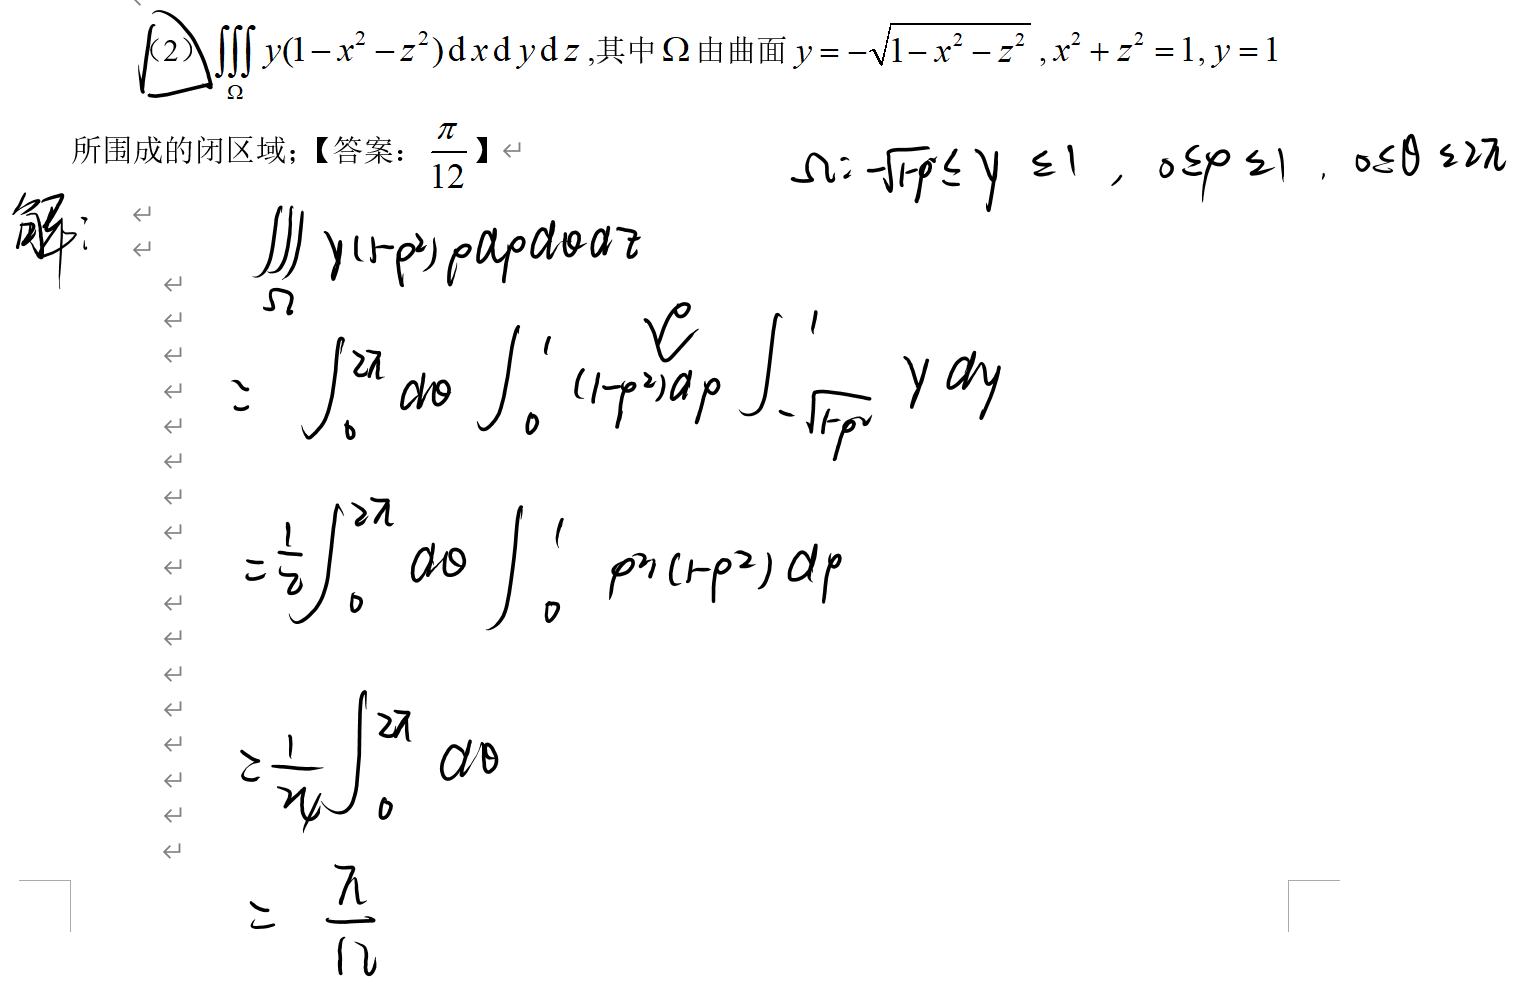 (2) ∭_Ω y(1−x²−z²)dxdydz ,其中Ω由曲面 y=−√(1−x²−z²) , x²+z²=1, y=1
所围成的闭区域;【答案: π/12】↵
Ω: −√(1-ρ²) ≤ y ≤ 1 , 0≤ρ≤1 , 0≤θ≤2π
解:
∭_Ω y(1-ρ²) ρ dρ dθ dz
= ∫_0^{2π} dθ ∫_0^1 ρ (1-ρ²) dρ ∫_{-√(1-ρ²)}^1 y dy
= 1/2 ∫_0^{2π} dθ ∫_0^1 ρ³ (1-ρ²) dρ
= 1/24 ∫_0^{2π} dθ
= π/12